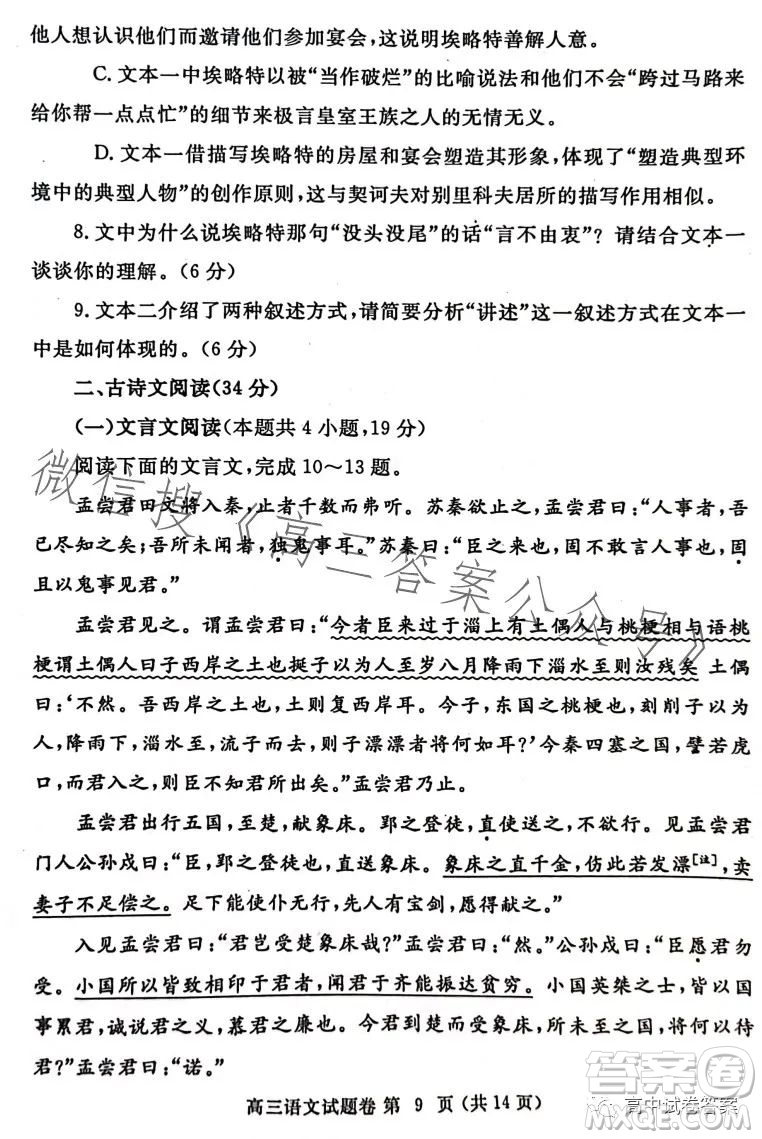 他人想认识他们而邀请他们参加宴会，这说明埃略特善解人意。
C. 文本一中埃略特以被“当作破烂”的比喻说法和他们不会“跨过马路来
给你帮一点点忙”的细节来极言皇室王族之人的无情无义。
D. 文本一借描写埃略特的房屋和宴会塑造其形象，体现了“塑造典型环
境中的典型人物”的创作原则，这与契诃夫对别里科夫居所的描写作用相似。
8. 文中为什么说埃略特那句“没头没尾”的话“言不由衷”？请结合文本一
谈谈你的理解。(6分)
9. 文本二介绍了两种叙述方式，请简要分析“讲述”这一叙述方式在文本一
中是如何体现的。(6分)
二、古诗文阅读(34分)
(一)文言文阅读(本题共4小题，19分)
阅读下面的文言文，完成10～13题。
孟尝君田文将入秦，止者千数而弗听。苏秦欲止之，孟尝君曰：“人事者，吾
已尽知之矣；吾所未闻者，独鬼事耳。”苏秦曰：“臣之来也，固不敢言人事也，固
且以鬼事见君。”
孟尝君见之。谓孟尝君曰：“今者臣来过于淄上有土偶人与桃梗相与语桃
梗谓土偶人曰子西岸之土也挺子以为人至岁八月降雨下淄水至则汝残矣 土偶
曰：‘不然。吾西岸之土也，土则复西岸耳。今子，东国之桃梗也，刻削子以为
人，降雨下，淄水至，流子而去，则子漂漂者将何如耳？’今秦四塞之国，譬若虎
口，而君入之，则臣不知君所出矣。”孟尝君乃止。
孟尝君出行五国，至楚，献象床。郢之登徒，直使送之，不欲行。见孟尝君
门人公孙戍曰：“臣，郢之登徒也，直送象床。象床之直千金，伤此若发漂[注]，卖
妻子不足偿之。足下能使仆无行，先人有宝剑，愿得献之。”
入见孟尝君曰：“君岂受楚象床哉？”孟尝君曰：“然。”公孙戍曰：“臣愿君勿
受。小国所以皆致相印于君者，闻君于齐能振达贫穷。小国英桀之士，皆以国
事累君，诚说君之义，慕君之廉也。今君到楚而受象床，所未至之国，将何以待
君？”孟尝君曰：“诺。”
高三语文试题卷 第 9 页(共14页)
微信搜《高三答案公众号》
高中试卷答案
答案圈
MXQE.COM